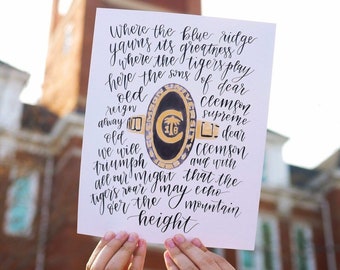 Where the blue ridge
yawns its greatness
where the tigers play
here the sons of dear
old clemson
reign supreme
alway dear
old clemson
we will and with
triumph
all our might that the
tigers roar may echo
oer the mountain
height
C
18